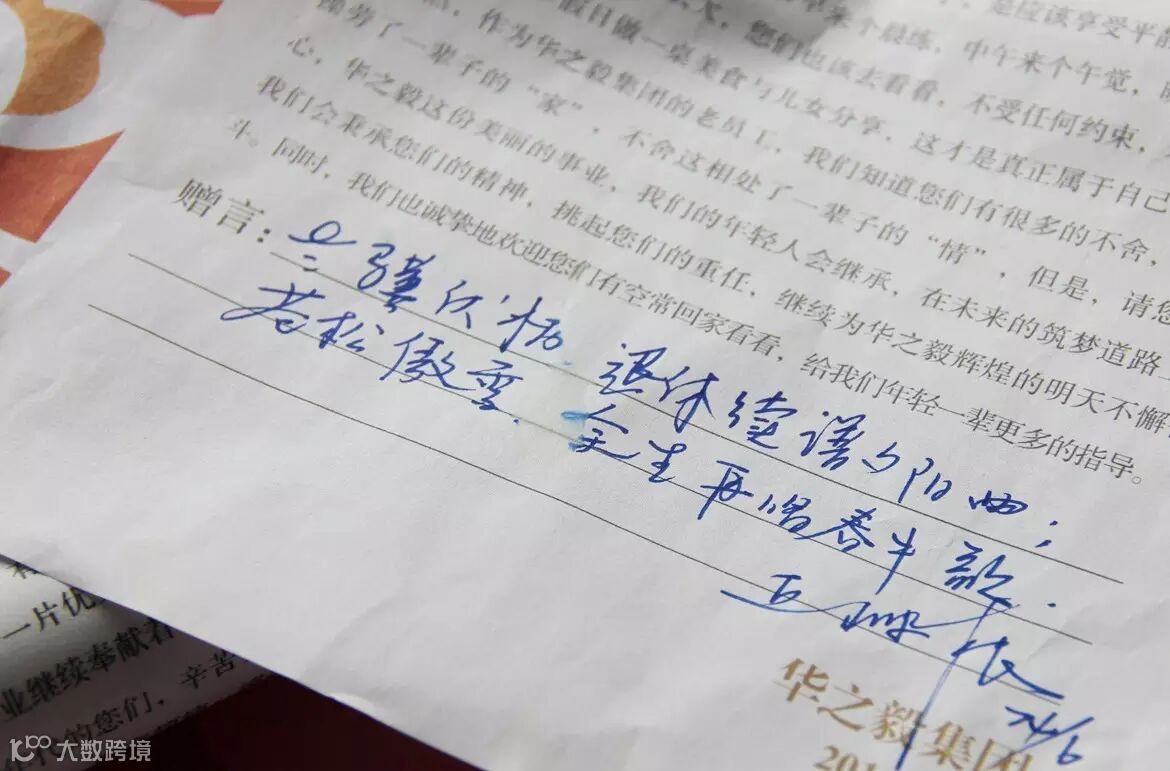 是应该享受平静
早来个晨练，中午来个午觉，
大，您们也该去看看，不受任何约束，
假日做一桌美食与儿女分享，这才是真正属于自己
，作为华之毅集团的老员工，我们知道您们有很多的不舍，
操劳了一辈子的“家”，不舍这相处了一辈子的“情”，但是，请您
心，华之毅这份美丽的事业，我们的年轻人会继承，在未来的筑梦道路上
我们会秉承您们的精神，挑起您们的重任，继续为华之毅辉煌的明天不懈
斗。同时，我们也诚挚地欢迎您们有空常回家看看，给我们年轻一辈更多的指导。
赠言：骥伏枥，退休续谱夕阳曲；
苍松傲雪，余生再唱春牛歌.
24/6
华之毅集团
201
一片优
业继续奉献着
代的您们，辛苦
大数跨境